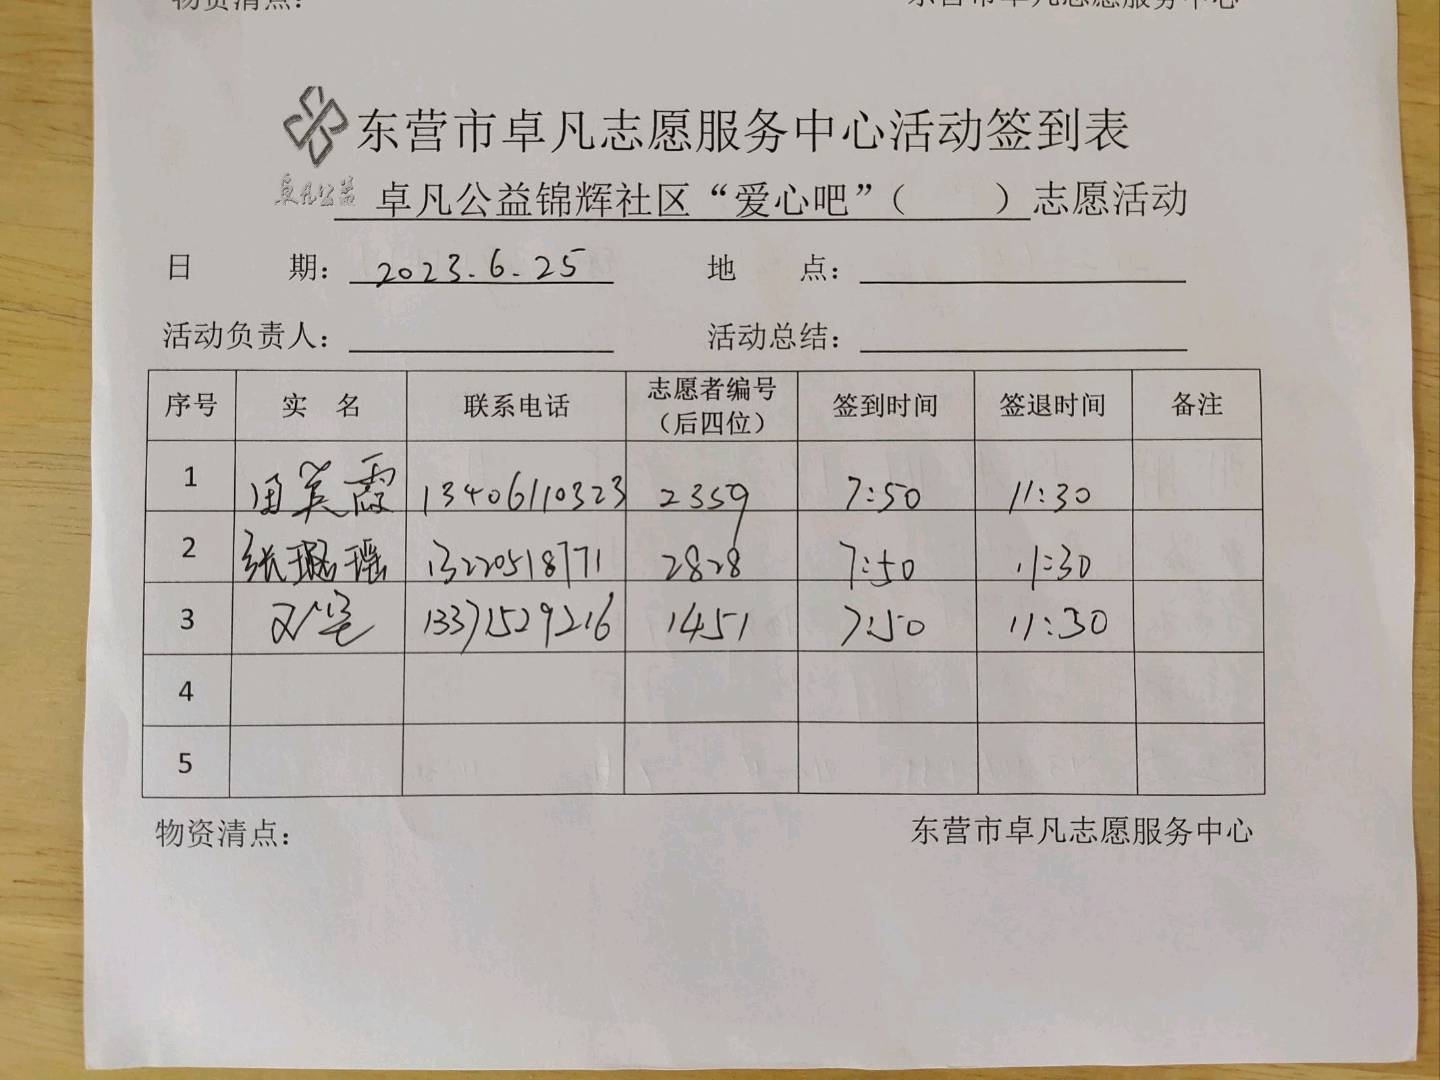 物资清点：
东营市卓凡志愿服务中心
东营市卓凡志愿服务中心活动签到表
卓凡公益
卓凡公益锦辉社区“爱心吧”（ ）志愿活动
日 期：2023.6.25 地 点：
活动负责人： 活动总结：
序号 实 名 联系电话 志愿者编号（后四位） 签到时间 签退时间 备注
1 田美霞 13406110323 2359 7:50 11:30
2 张璐瑶 13220518771 2828 7:50 11:30
3 13371529216 1451 7:50 11:30
4
5
物资清点：
东营市卓凡志愿服务中心